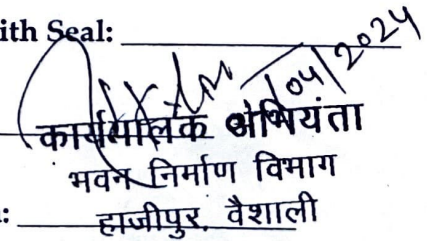 ith Seal:
/04/2024
कार्यपालक अभियंता
भवन निर्माण विभाग
हाजीपुर, वैशाली
: